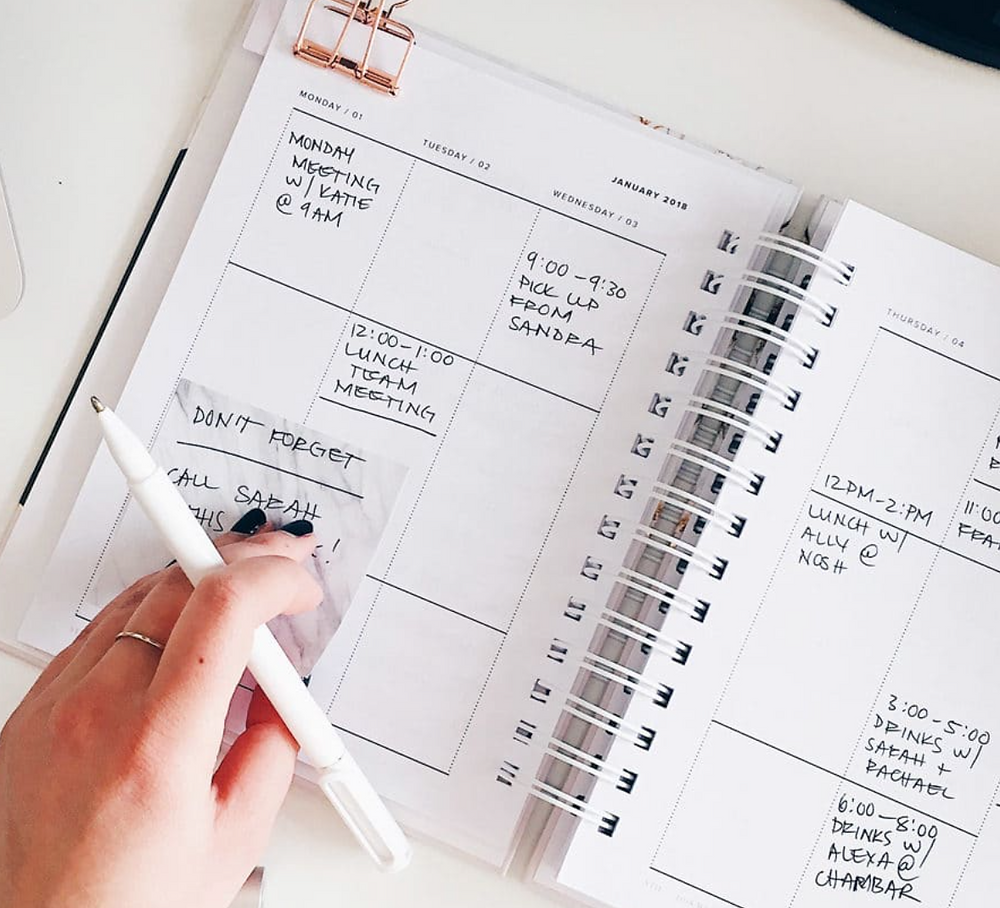 JANUARY 2018
MONDAY / 01
MONDAY
MEETING
W/ KATIE
@ 9AM
TUESDAY / 02
12:00-1:00
LUNCH
TEAM
MEETING
WEDNESDAY / 03
9:00-9:30
PICK UP
FROM
SANDRA
DON'T FORGET
CALL SARAH
THIS
THURSDAY / 04
12PM-2:PM
LUNCH W/
ALLY @
NOSH
11:00
3:00-5:00
DRINKS W/
SARAH +
RACHAEL
6:00-8:00
DRINKS W/
ALEXA @
CHAMBAR